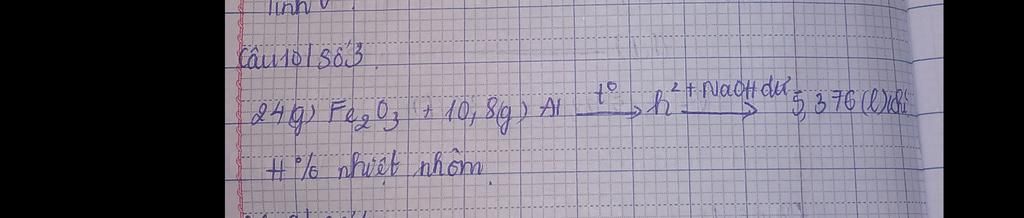 linh
Câu 10 / Số 3.
24(g) Fe₂O₃ + 10,8(g) Al —t°→ h² + NaOH dư → 5,376 (l) khí
H% nhiệt nhôm.